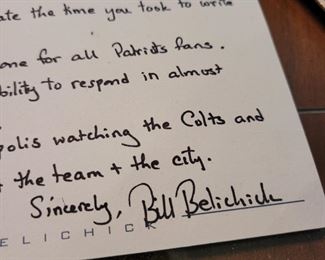 ate the time you took to write
one for all Patriots fans.
bility to respond in almost
polis watching the Colts and
the team + the city.
Sincerely, Bill Belichick
ELICHICK